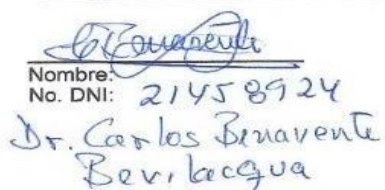 Nombre:
No. DNI: 21458924
Dr. Carlos Benavente
Bevilacqua